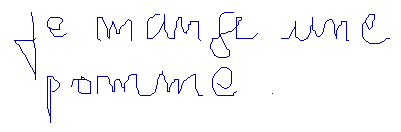 je mange une
pomme.